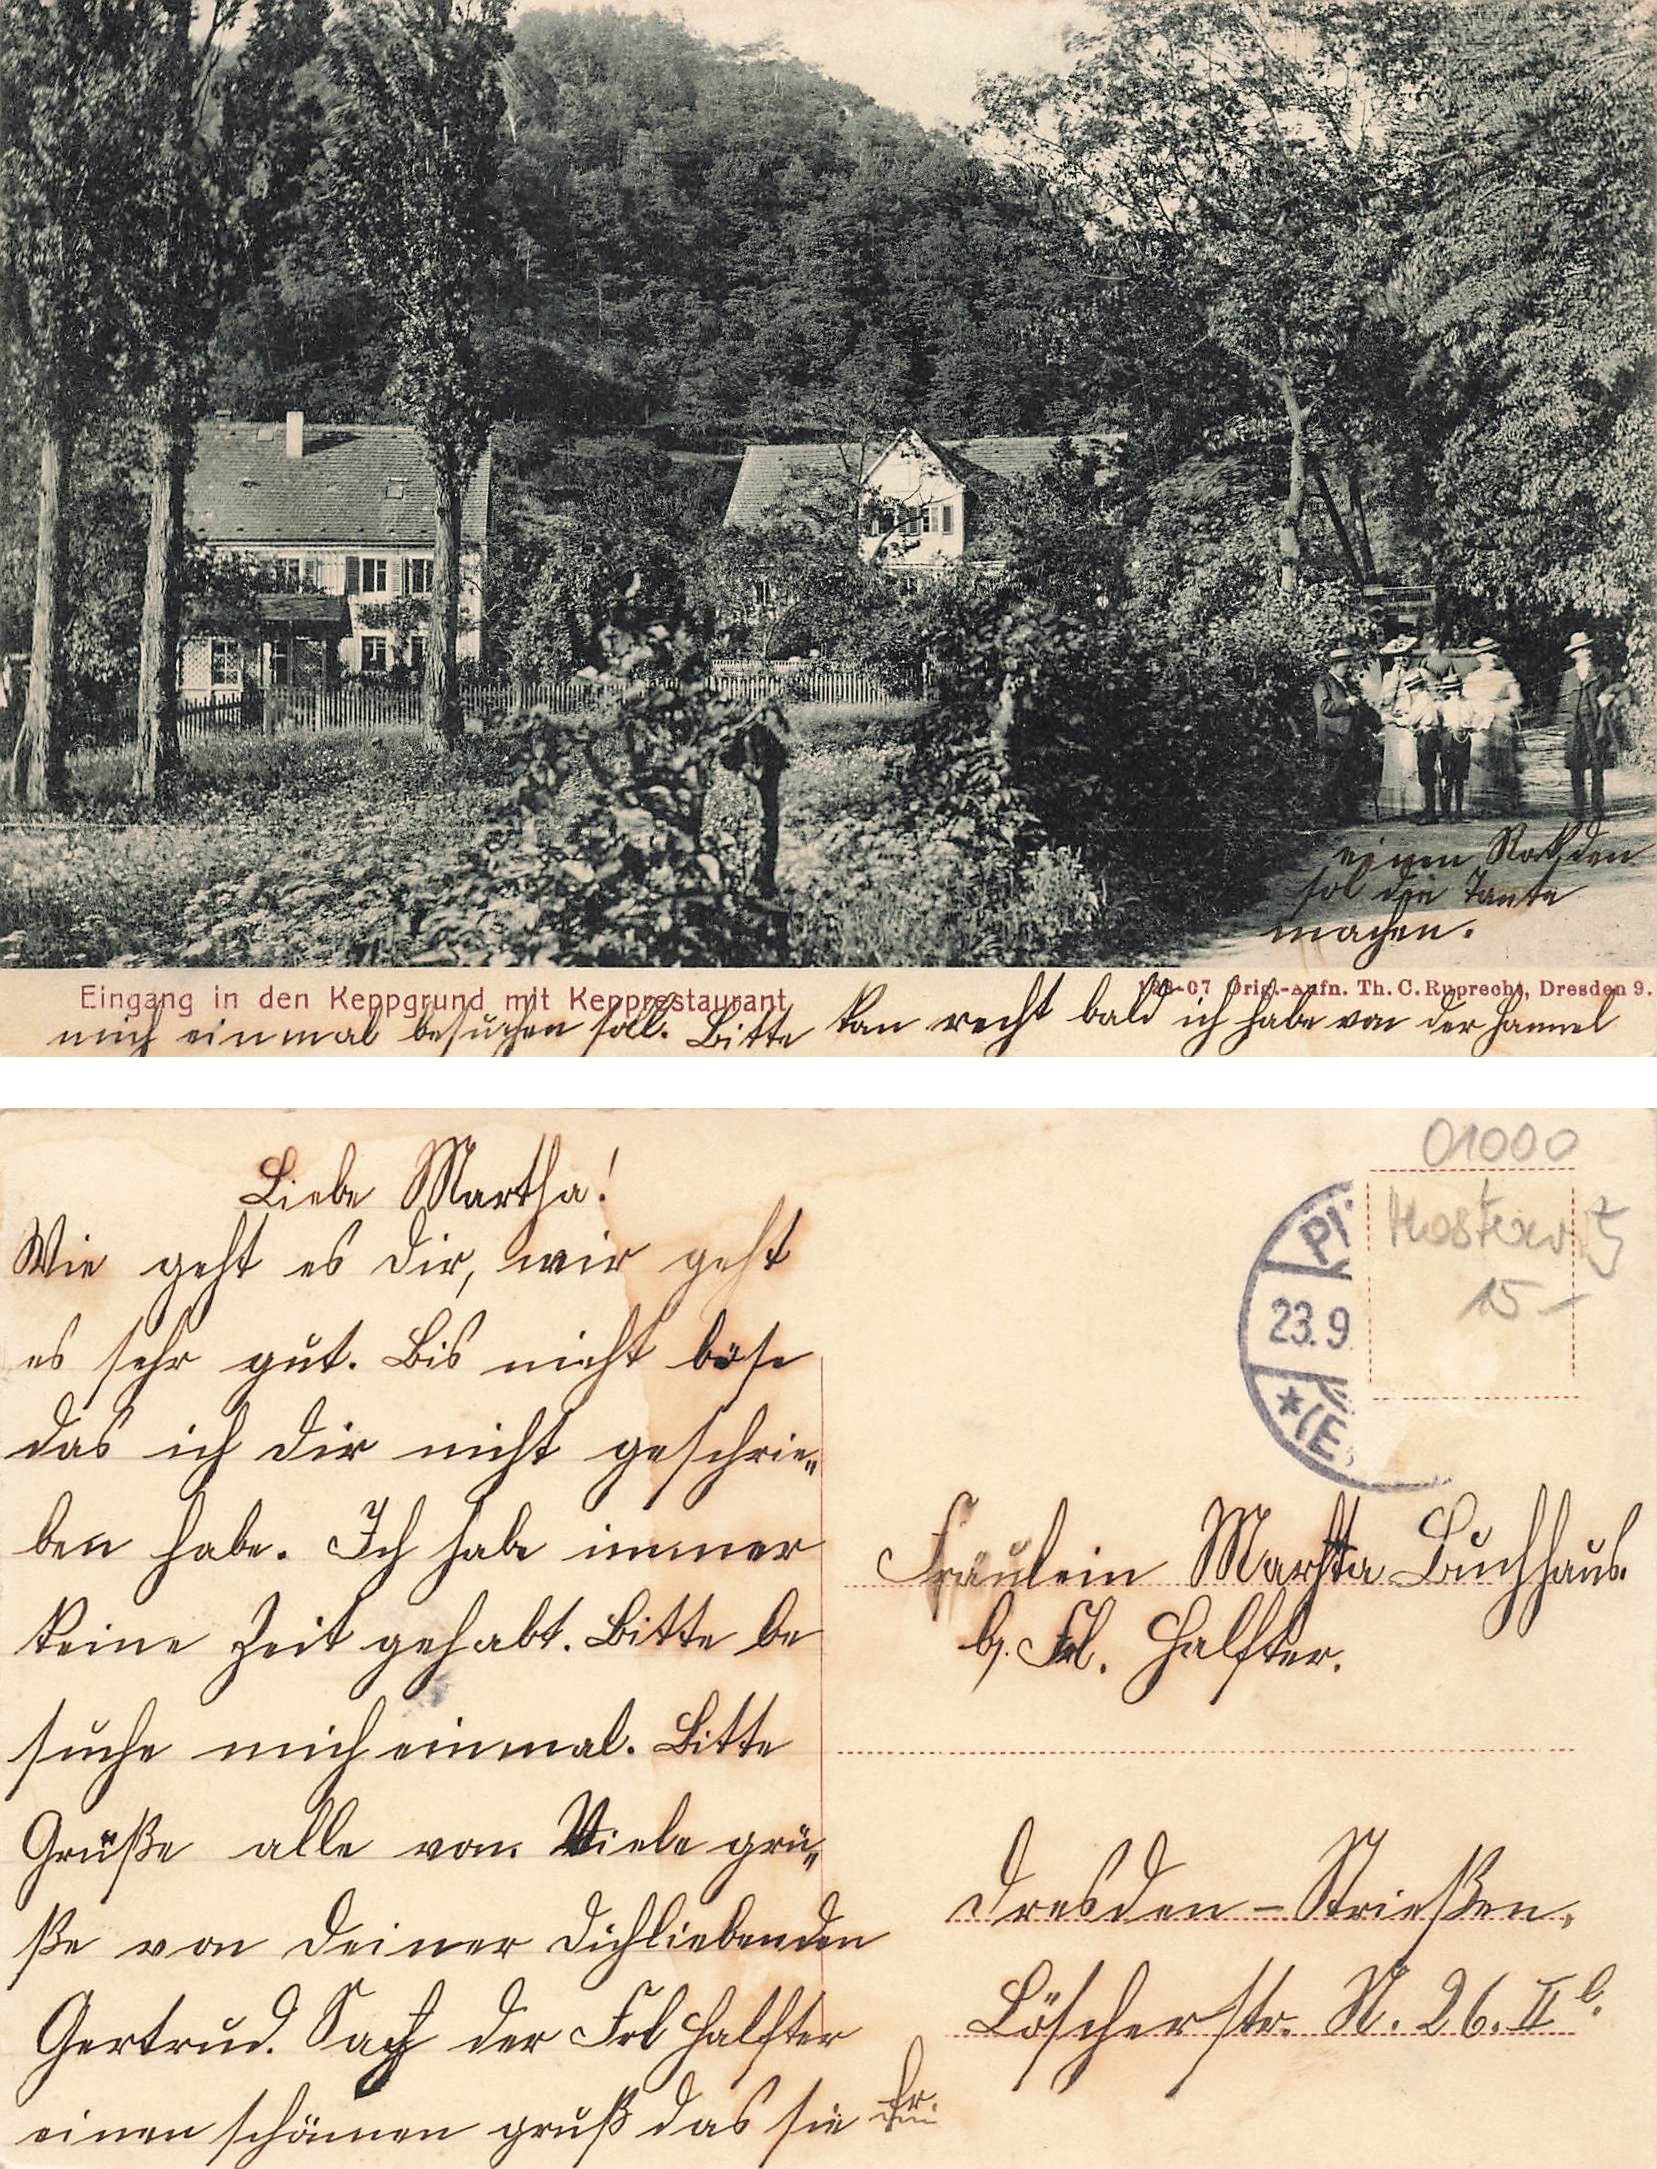 einen Rok, den
sol die Tante
machen.
Eingang in den Keppgrund mit Kepprestaurant
193-07 Orig.-aufn. Th. C. Ruprecht, Dresden 9.
mich einmal besuchen soll. Bitte kan recht bald ich habe von der Hannel
01000
Hosterwitz
15-
PI
23.9
*(E.
Liebe Martha!
Wie geht es dir, mir geht
es sehr gut. Bis nicht böse
das ich dir nicht geschrie-
ben habe. Ich habe immer
keine Zeit gehabt. Bitte be
suche mich einmal. Bitte
Grüße alle von. Viele grü-
ße von deiner dichliebenden
Gertrud. Sag der Frl Halfter
einen schönen gruß das sie
Fräulein Martha Buchhaus.
b. Frl. Halfter.
Dresden-Strießen,
Löscherstr. N. 26. II l.